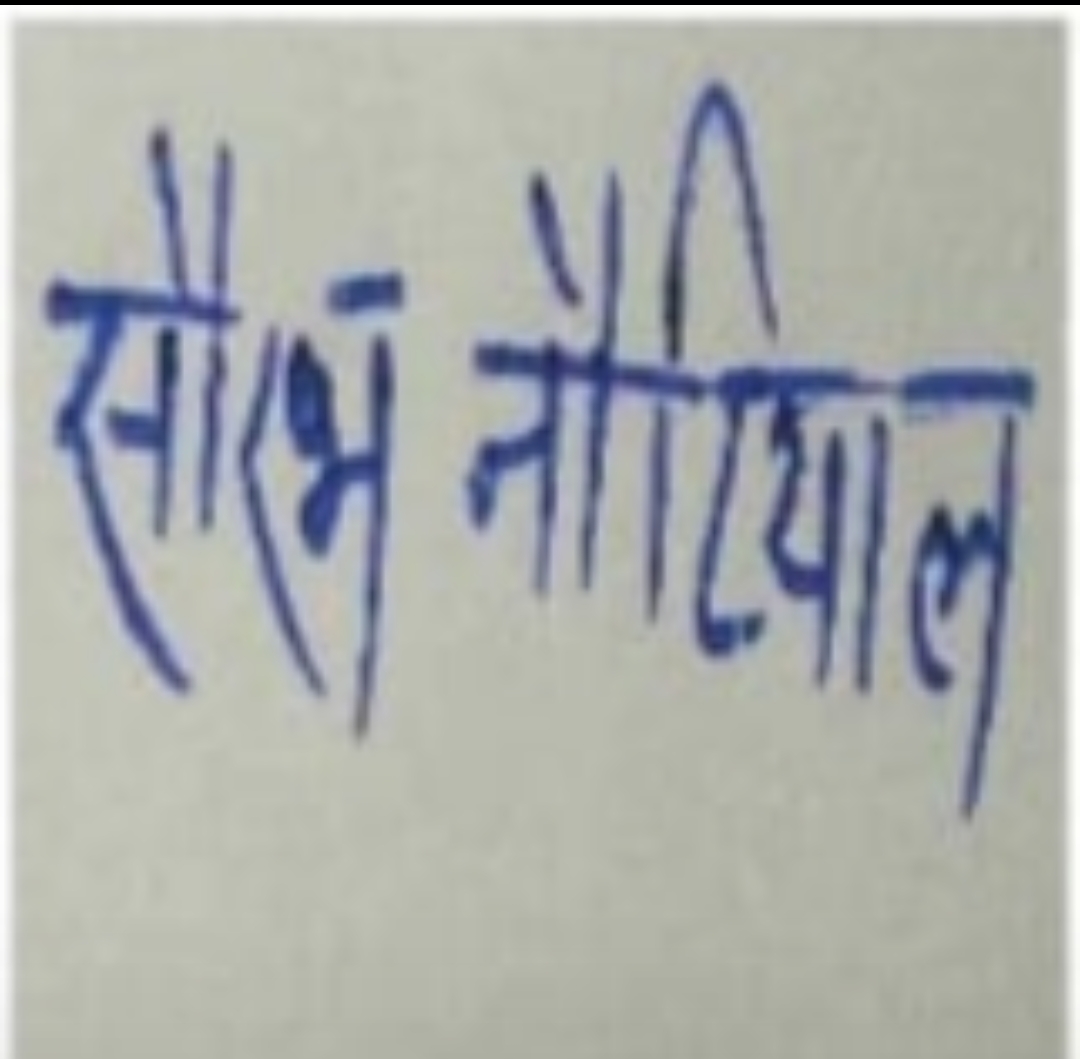 सोरभ नोटियाल